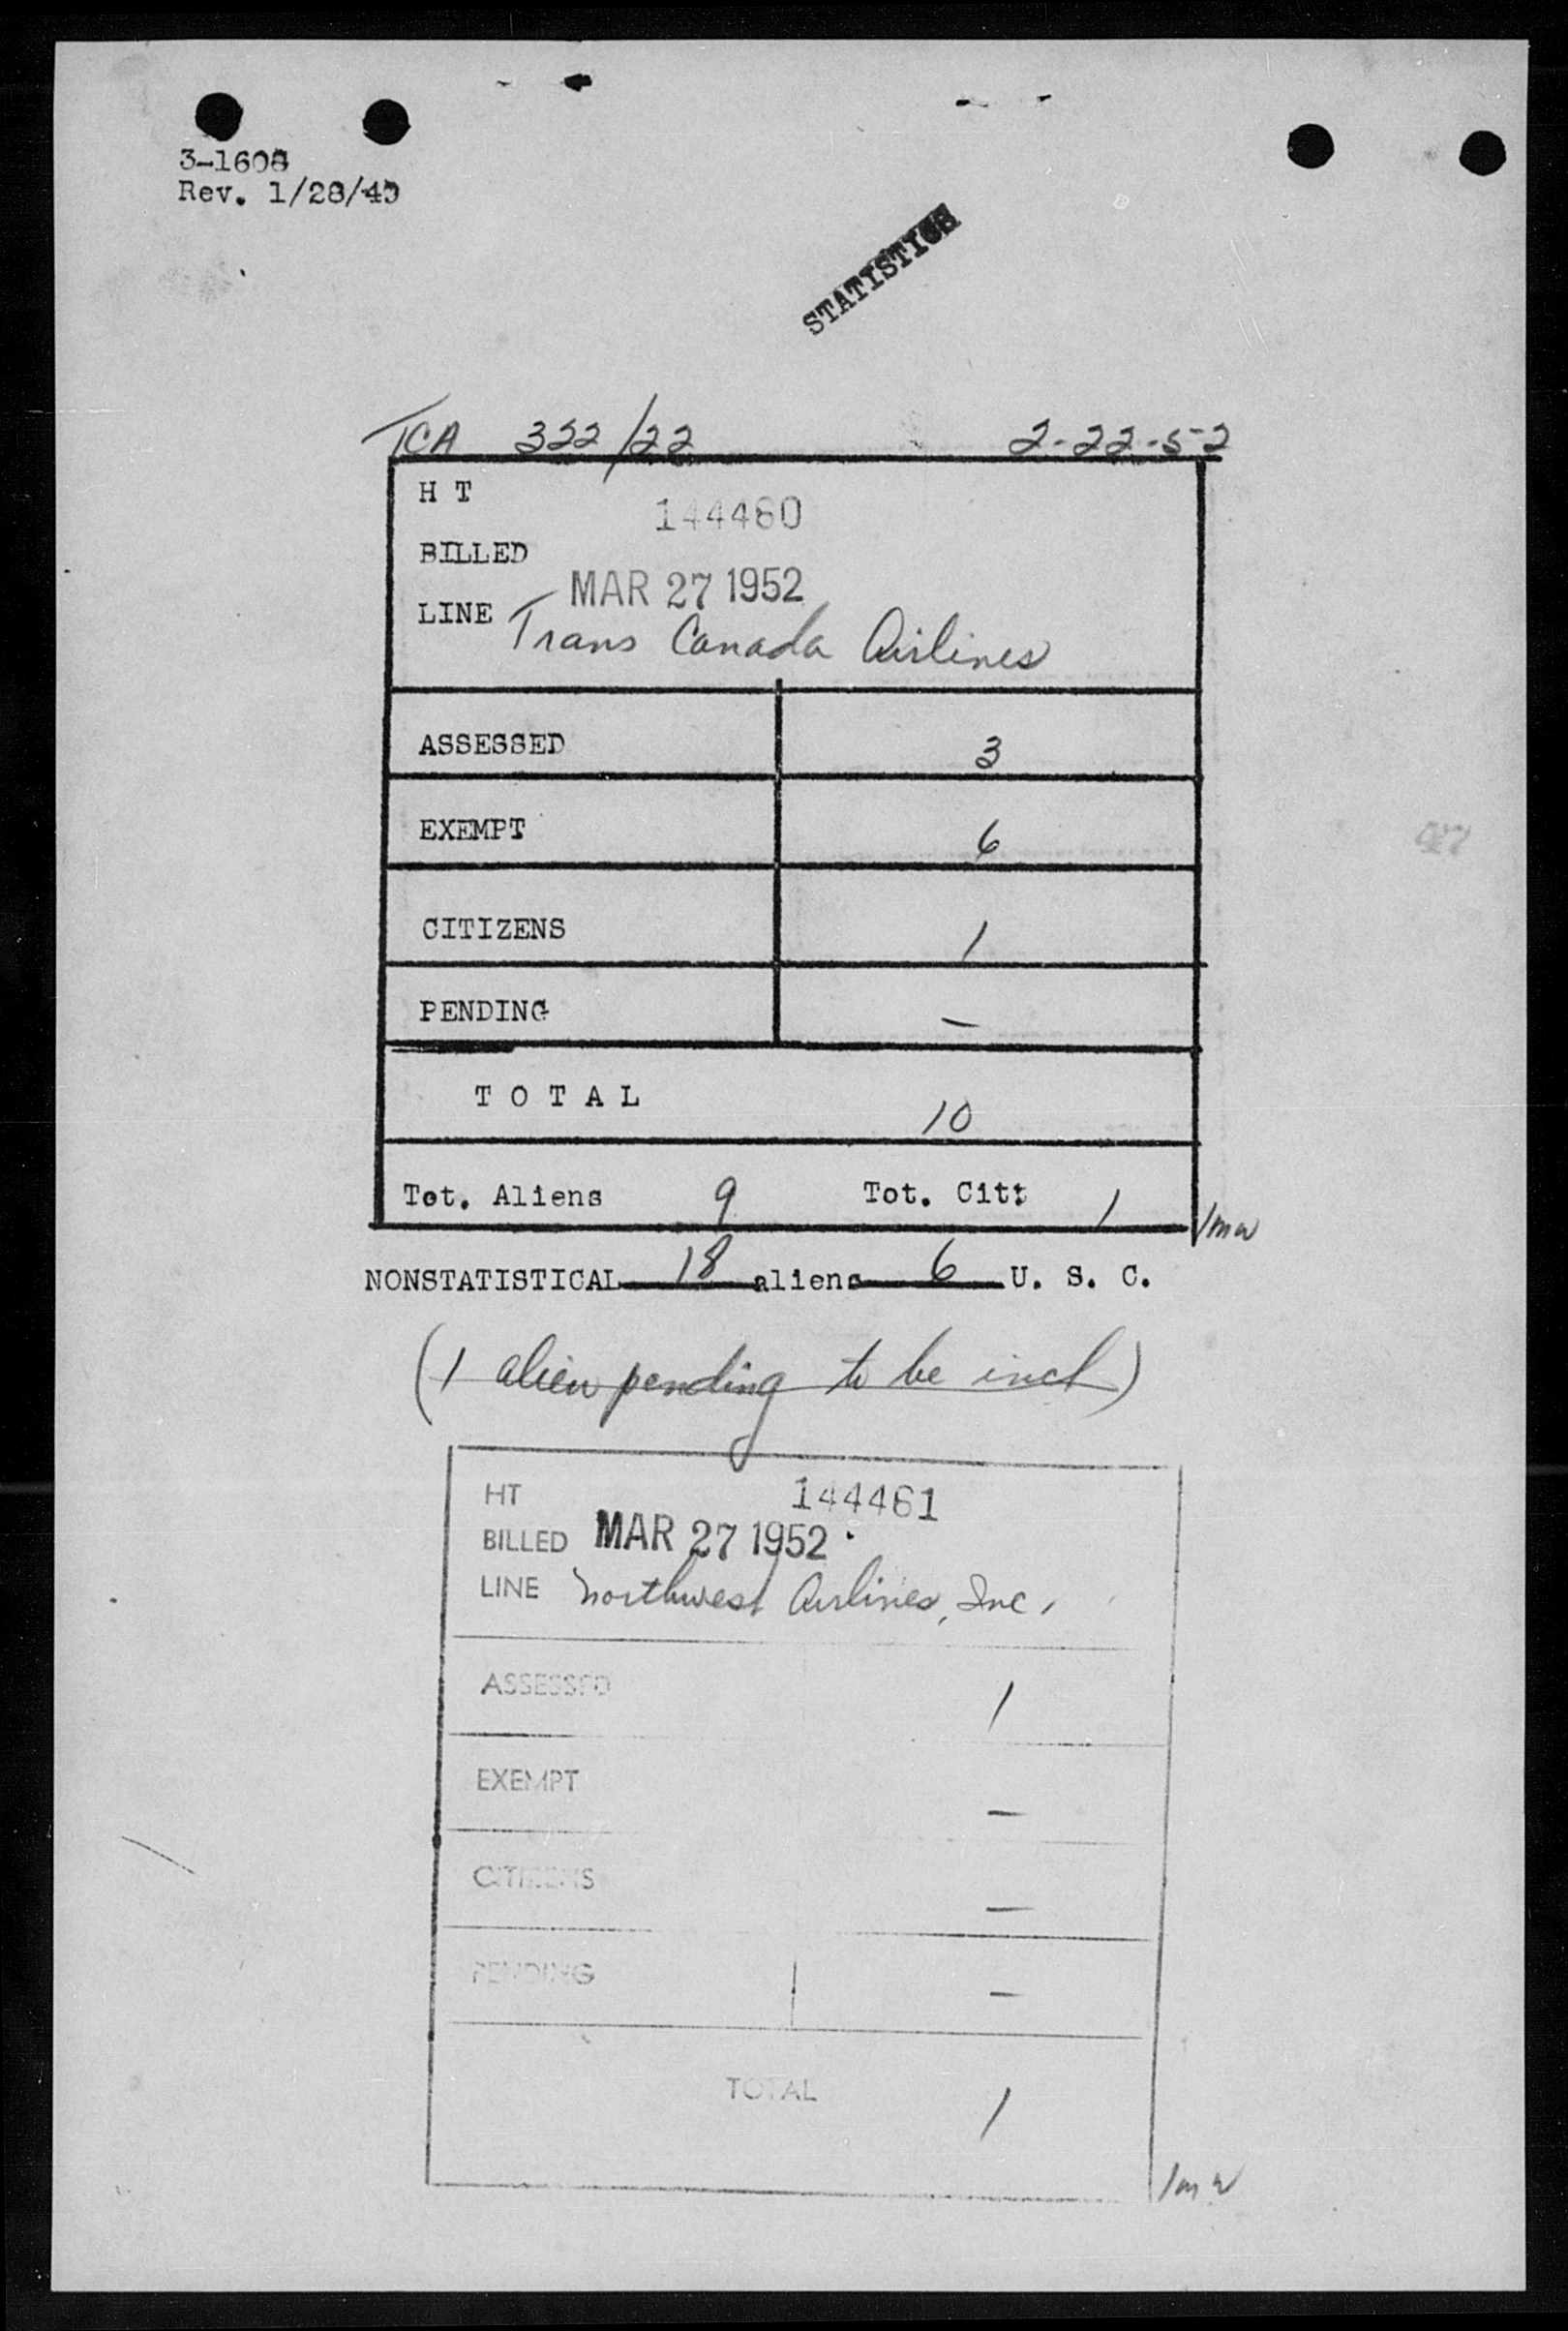 3-1608
Rev. 1/28/49
STATISTICS
TCA 322/22 2-22-52
H T 144460
BILLED MAR 27 1952
LINE Trans Canada Airlines
ASSESSED 3
EXEMPT 6
CITIZENS 1
PENDING —
T O T A L 10
Tot. Aliens 9 Tot. Citt 1
NONSTATISTICAL 18 aliens 6 U. S. C.
(1 alien pending to be incl)
HT 144461
BILLED MAR 27 1952
LINE Northwest Airlines, Inc.
ASSESSED 1
EXEMPT —
CITIZENS —
PENDING —
TOTAL 1